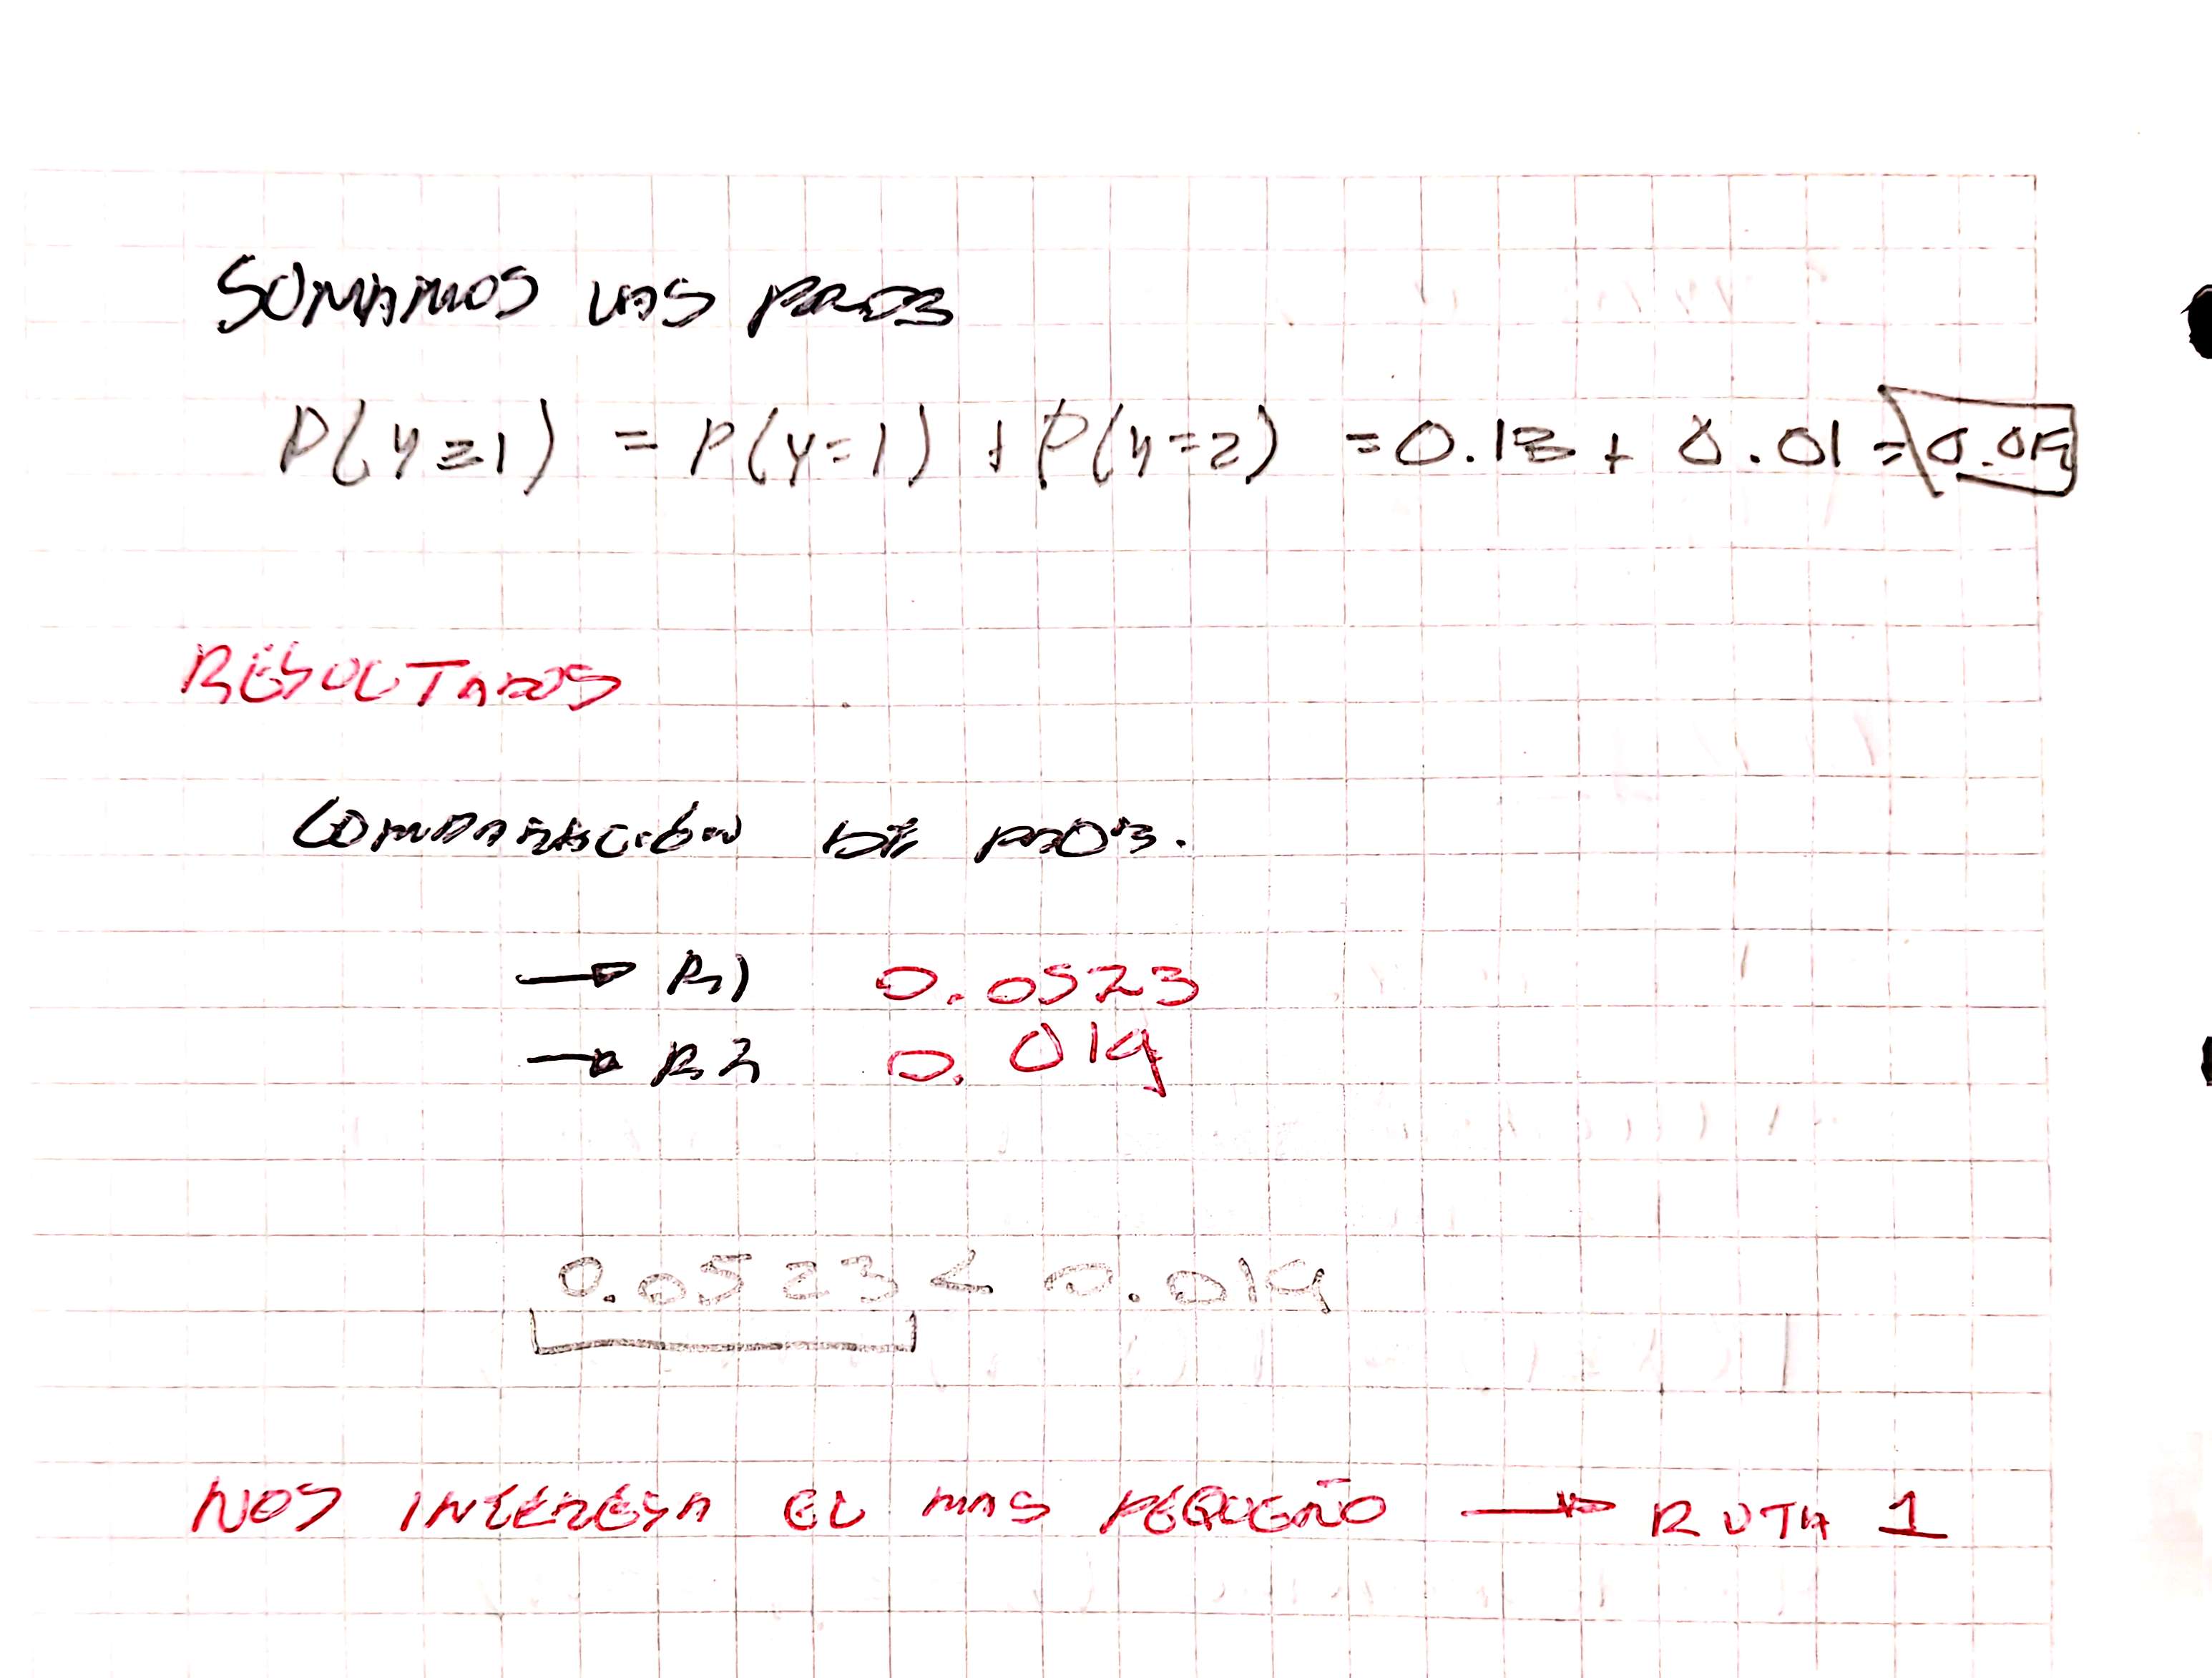 SUMAMOS LAS PROB
P(y≥1) = P(y=1) + P(y=2) = 0.18 + 0.01 = 0.019
RESULTADOS
COMPARACIÓN DE PROB.
→ R1 0.0523
→ R2 0.019
0.0523 < 0.019
NOS INTERESA EL MAS PEQUEÑO → RUTA 1